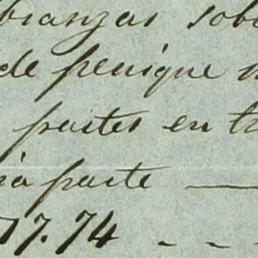 branzas sob
de penique
partes en tr
ia parte —
17.74 - - -